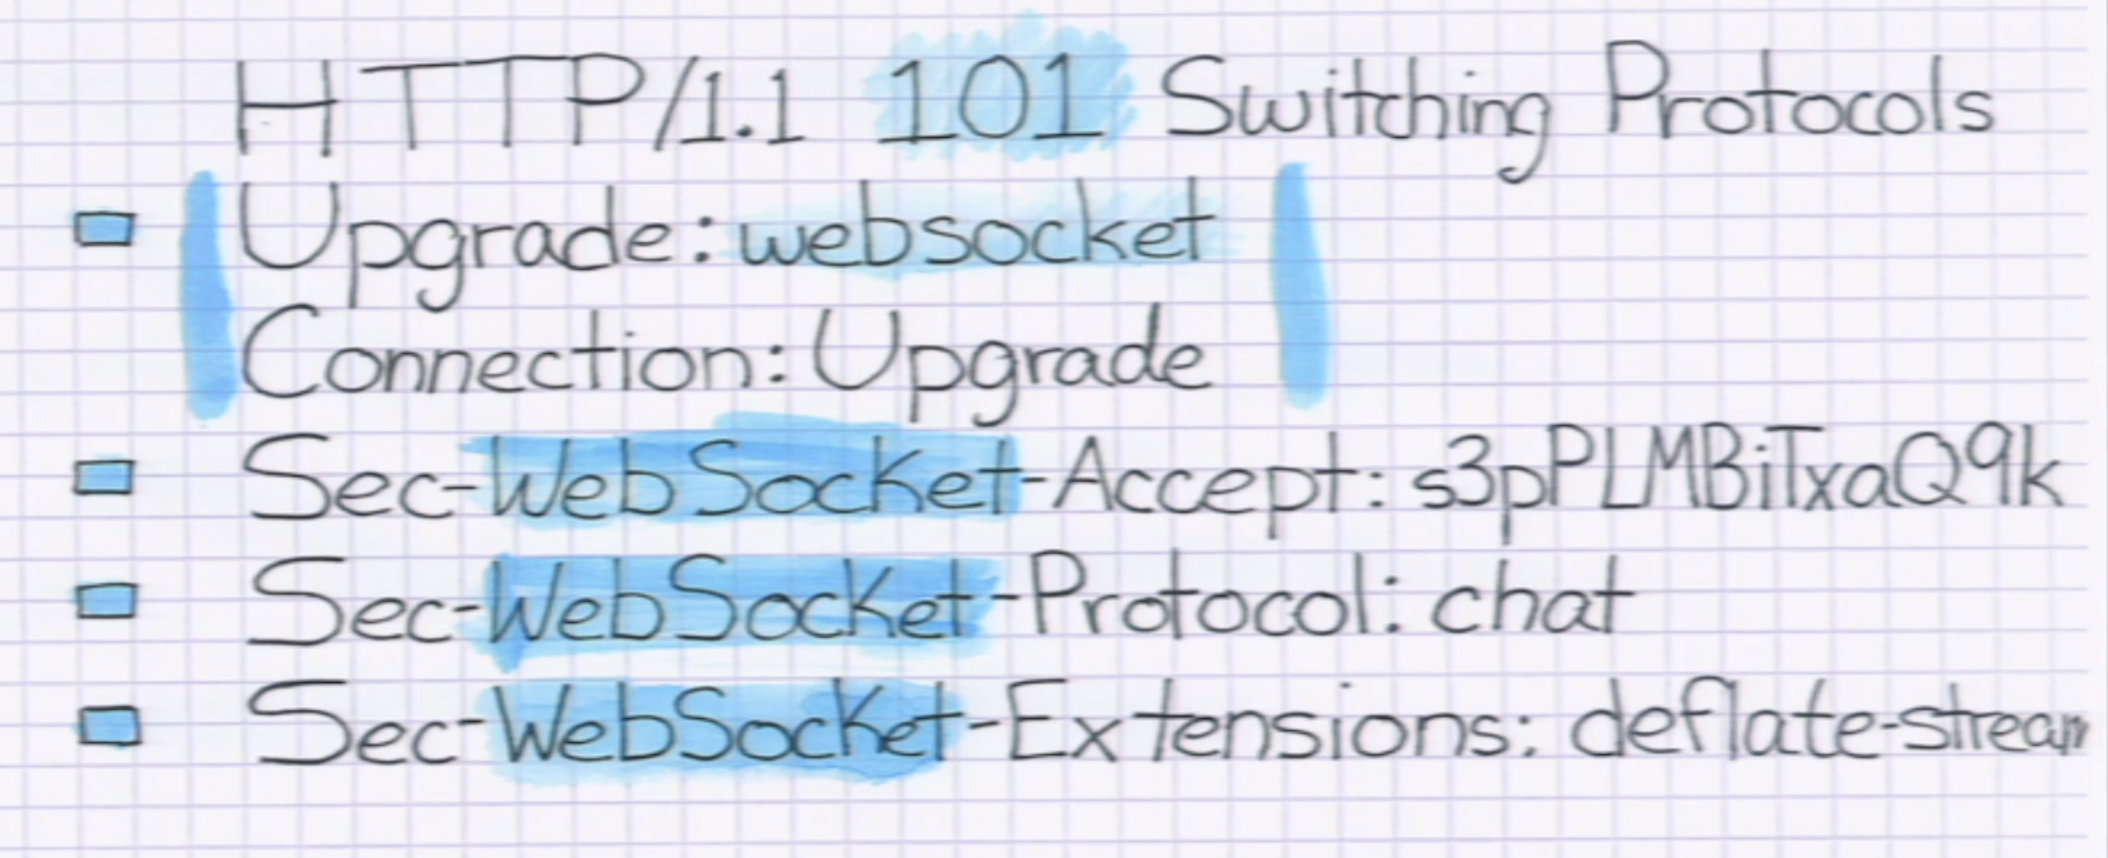 HTTP/1.1 101 Switching Protocols
Upgrade: websocket
Connection: Upgrade
Sec-WebSocket-Accept: s3pPLMBiTxaQ9k
Sec-WebSocket-Protocol: chat
Sec-WebSocket-Extensions: deflate-stream